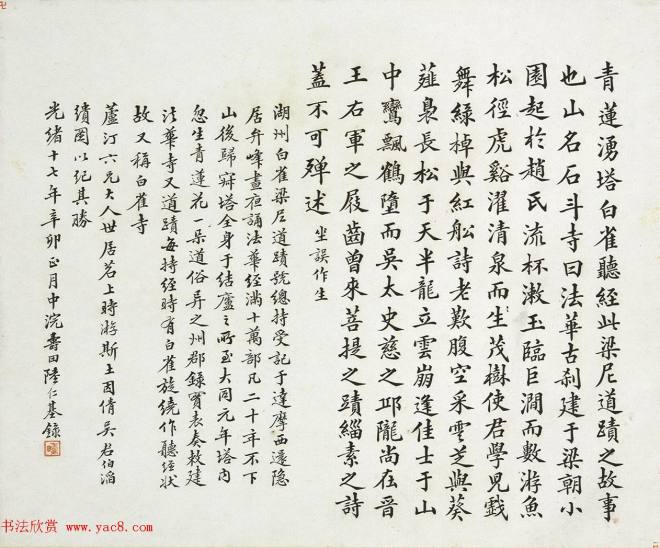 青蓮湧塔白雀聽經此梁尼道蹟之故事
也山名石斗寺曰法華古刹建于梁朝小
園起於趙氏流杯漱玉臨巨澗而數游魚
松徑虎谿濯清泉而生茂樹使君學兒戲
舞綠棹與紅船詩老歎腹空采雲芝與葵
薤裊長松于天半龍立雲崩逢佳士于山
中鸞飄鶴墮而吳太史慈之邱隴尚在晉
王右軍之屐齒曾來菩提之蹟緇素之詩
蓋不可殫述 坐誤作生
湖州白雀梁尼道蹟號總持受記于達摩西還隱
居弁峰晝夜誦法華經滿十萬部凡二十年不下
山後歸寂塔全身于結廬之所至大同元年塔內
忽生青蓮花一朵道俗异之州郡錄實表奏敕建
法華寺又道蹟每持經時有白雀旋繞作聽經狀
故又稱白雀寺
蘆汀六兄大人世居苕上時游斯土因倩吳君伯滔
繢圖以紀其勝
光緒十七年辛卯正月中浣壽田陸仁基錄
书法欣赏 www.yac8.com